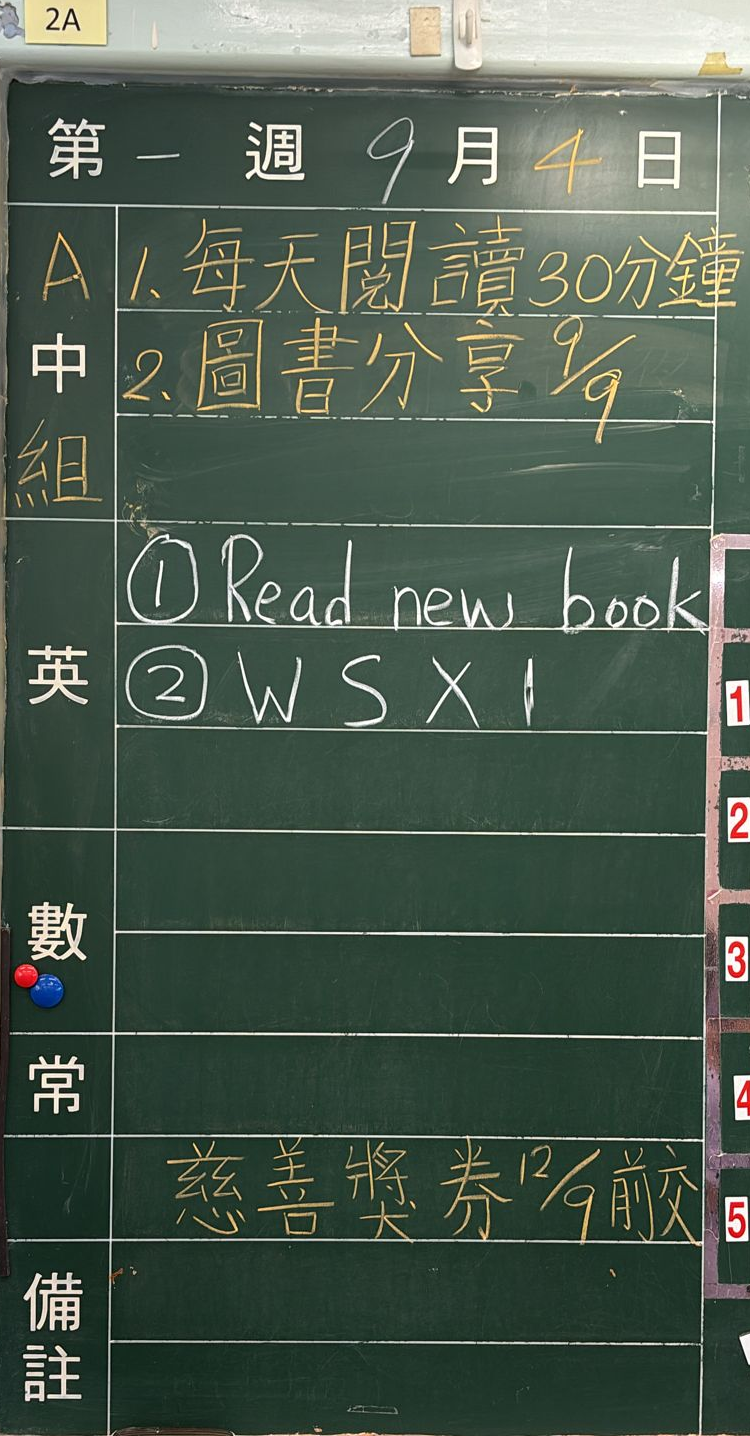 2A
第一週 9月4日
A中組
1. 每天閱讀30分鐘
2. 圖書分享 9/9
英
① Read new book
② W S X 1
數
常
慈善獎券 12/9 前交
備註
1
2
3
4
5